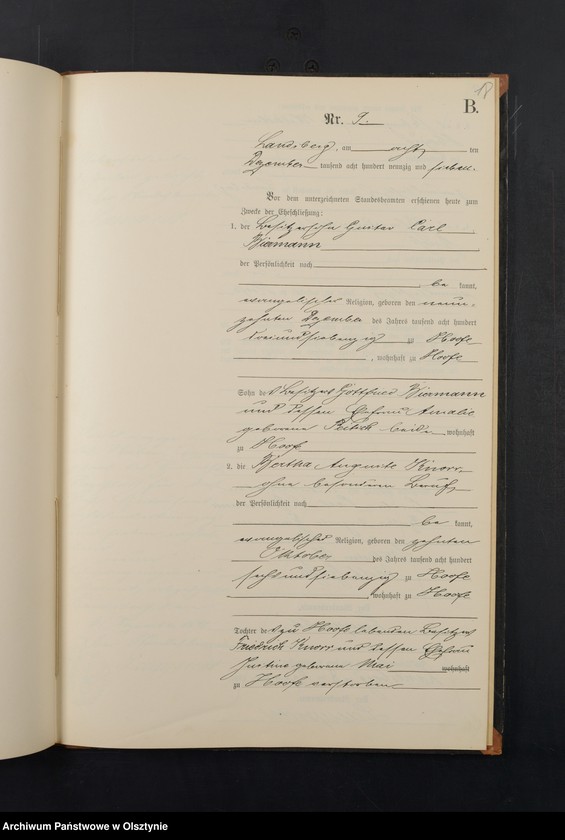 18
B.
Nr.
Landsberg, am acht ten
Dezember tausend acht hundert neunzig und sieben.
Vor dem unterzeichneten Standesbeamten erschienen heute zum
Zwecke der Eheschließung:
1. der Besitzersohn Gustav Carl
Biermann
der Persönlichkeit nach
be kannt,
evangelischer Religion, geboren den neun-
zehnten Dezember des Jahres tausend acht hundert
dreiundsiebenzig zu Hoofe
, wohnhaft zu Hoofe
Sohn des Besitzers Gottfried Biermann
und dessen Ehefrau Amalie
geborene beide wohnhaft
zu Hoofe
2. die Bertha Auguste Knorr,
ohne besonderen Beruf,
der Persönlichkeit nach
be kannt,
evangelischer Religion, geboren den zehnten
Oktober des Jahres tausend acht hundert
sechsundsiebenzig zu Hoofe
, wohnhaft zu Hoofe
Tochter des zu Hoofe lebenden Besitzers
Friedrich Knorr und dessen Ehefrau
Justine geborene Mai wohnhaft
zu Hoofe verstorben
Archiwum Państwowe w Olsztynie